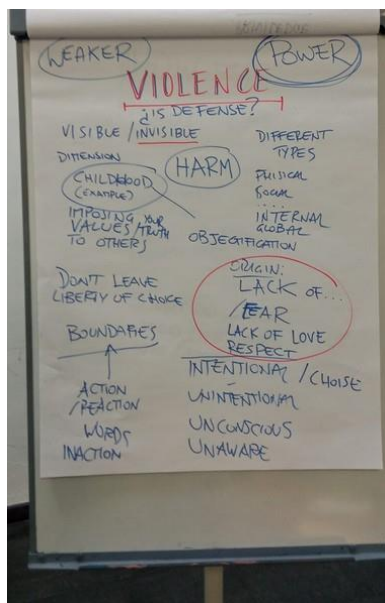 WEAKER
POWER
VIOLENCE
¿IS DEFENSE?
VISIBLE/INVISIBLE
DIMENSION
CHILDHOOD
(EXAMPLE)
IMPOSING YOUR
VALUES/TRUTH
TO OTHERS
HARM
OBJECTIFICATION
DIFFERENT
TYPES
PHISICAL
SOCIAL
....
INTERNAL
GLOBAL
DON'T LEAVE
LIBERTY OF CHOICE
BOUNDARIES
ACTION
/REACTION
WORDS
INACTION
ORIGIN:
LACK OF...
/FEAR
LACK OF LOVE
RESPECT
INTENTIONAL/CHOISE
UNINTENTIONAL
UNCONSCIOUS
UNAWARE